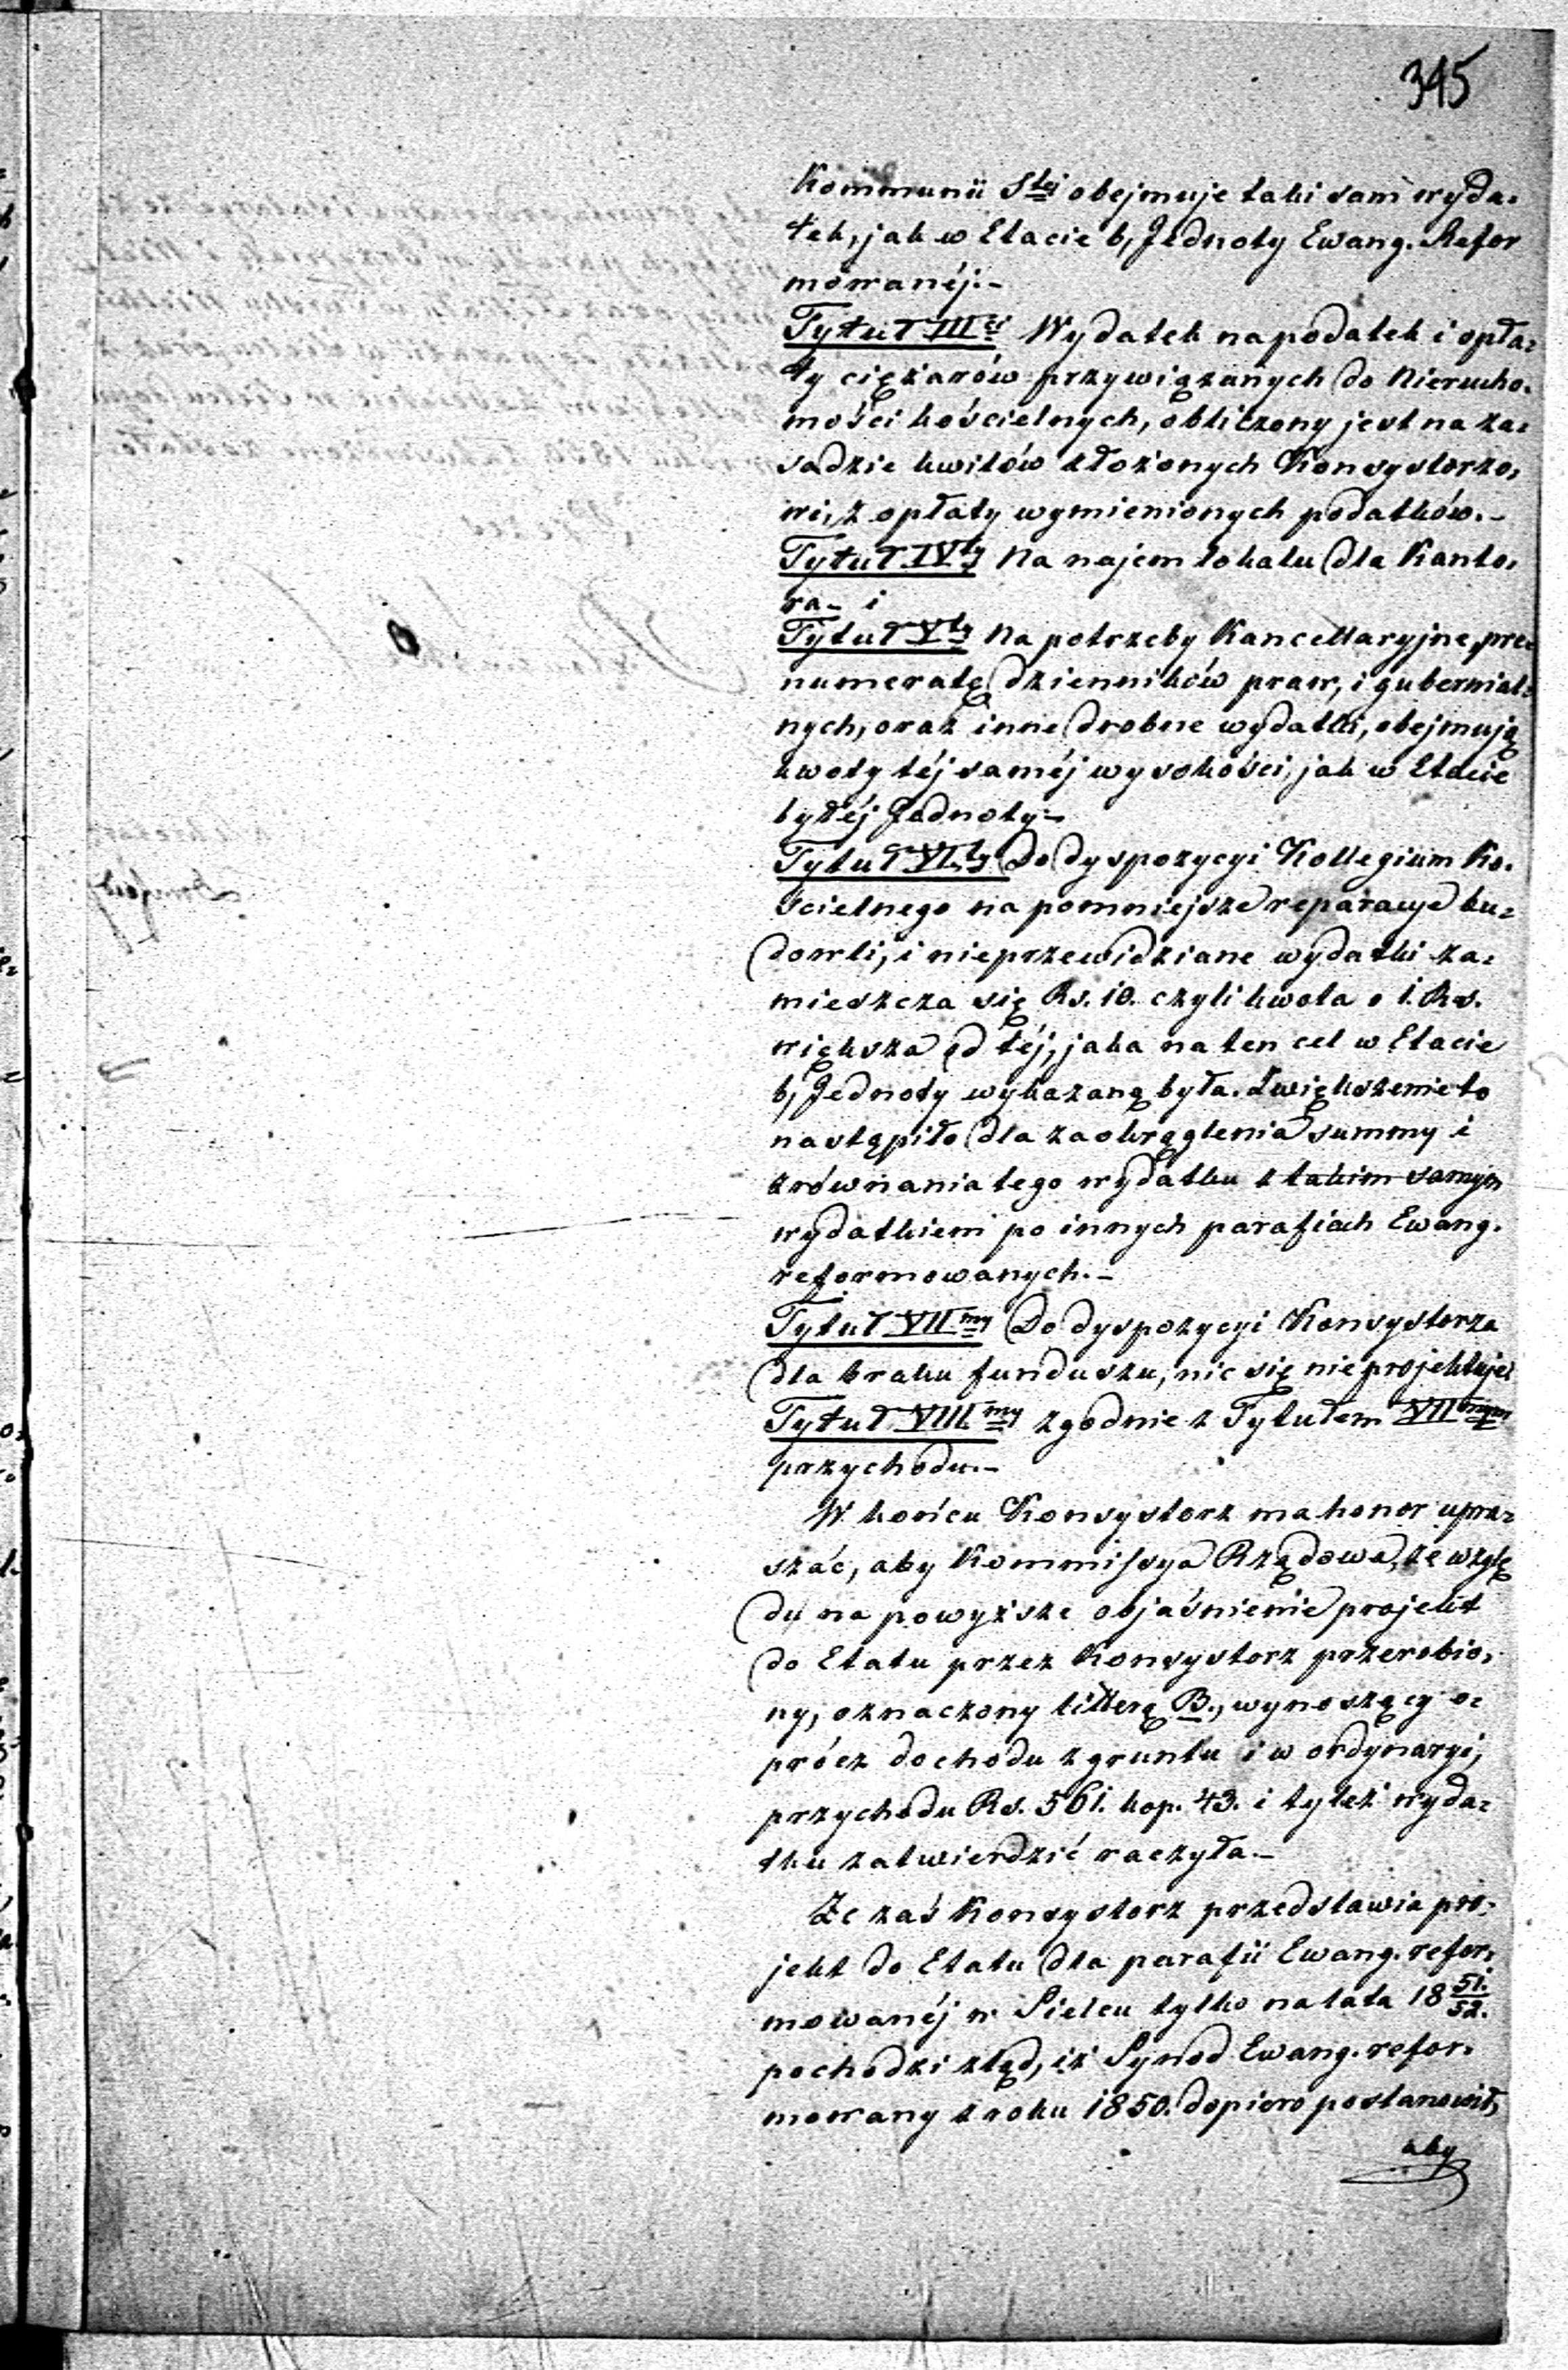 345
Kommunii Stej obejmuje taki sam wyda=
tek, jak w Etacie b, Jednoty Ewang. Refor
mowanéj.-
Tytuł IIIci Wydatek na podatek i opła=
ty ciężarów przywiązanych do Nierucho=
mości kościelnych, obliczony jest na za=
sadzie kwitów złożonych Konsystorzo=
wi, z opłaty wymienionych podatków.-
Tytuł IVty Na najem lokalu dla Kanto=
ra- i
Tytuł Vty Na potrzeby Kancellaryjne, pre=
numeratę dzienników praw, i gubernial=
nych, oraz inne drobne wydatki, obejmują
kwoty téj saméj wysokości, jak w Etacie
byłéj Jednoty-
Tytuł VIty Do dyspozycyi Kollegium Ko=
ścielnego na pomniejsze reparacye bu=
dowli, i nieprzewidziane wydatki za=
mieszcza się Rs. 10. czyli kwota o 1. Rs.
większa od téj, jaka na ten cel w Etacie
b, Jednoty wykazaną była. Zwiększenie to
nastąpiło dla zaokrąglenia summy i
zrównania tego wydatku z takim samym
wydatkiem po innych parafiach Ewang.
reformowanych.-
Tytuł VIImy Do dyspozycyi Konsystorza
dla braku funduszu, nic się nie projektuje
Tytuł VIIImy zgodnie z Tytułem VIImym
przychodu.-
W końcu Konsystorz ma honor upra=
szać, aby Kommissya Rządowa, ze wzglę
du na powyższe objaśnienie projekt
do Etatu przez Konsystorz przerobio=
ny, oznaczony literą B., wynoszący o=
prócz dochodu z gruntu i w ordynaryi,
przychodu Rs. 561. kop. 43. i tyleż wyda=
tku zatwierdzić raczyła.-
Że zaś Konsystorz przedstawia pro=
jekt do Etatu dla parafii Ewang. refor=
mowanéj w Sielcu tylko na lata 18 51/52.
pochodzi ztąd, iż Synod Ewang. refor=
mowany z roku 1850. dopiero postanowił,
aby